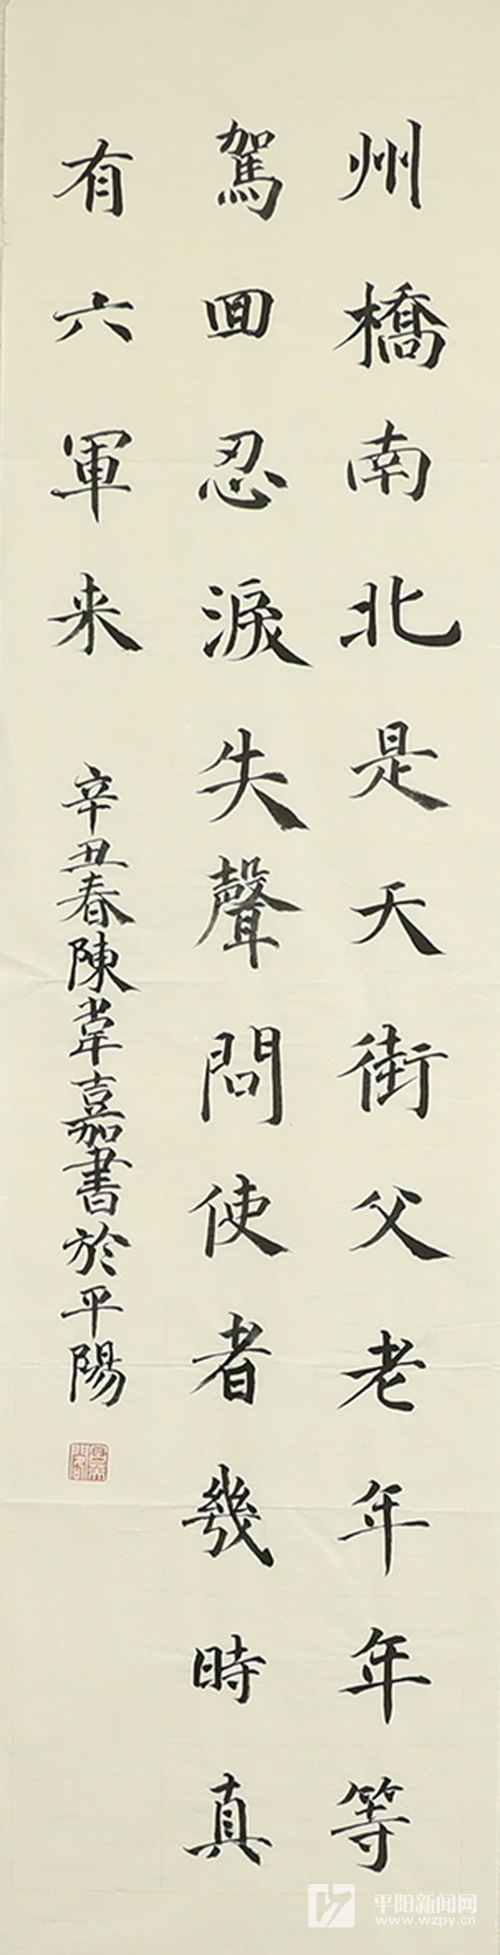 州橋南北是天街父老年年等
駕回忍淚失聲問使者幾時真
有六軍来
辛丑春陳韋嘉書於平陽
平阳新闻网
www.wzpy.cn